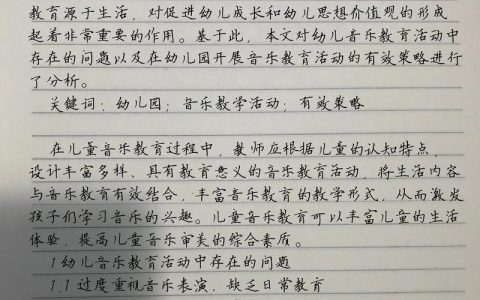 教育源于生活，对促进幼儿成长和幼儿思想价值观的形成
起着非常重要的作用。基于此，本文对幼儿音乐教育活动中
存在的问题以及在幼儿园开展音乐教育活动的有效策略进行
了分析。
关键词：幼儿园；音乐教学活动；有效策略
在儿童音乐教育过程中，教师应根据儿童的认知特点，
设计丰富多样、具有教育意义的音乐教育活动，将生活内容
与音乐教育有效结合，丰富音乐教育的教学形式，从而激发
孩子们学习音乐的兴趣。儿童音乐教育可以丰富儿童的生活
体验，提高儿童音乐审美的综合素质。
1幼儿音乐教育活动中存在的问题
1.1过度重视音乐表演，缺乏日常教育